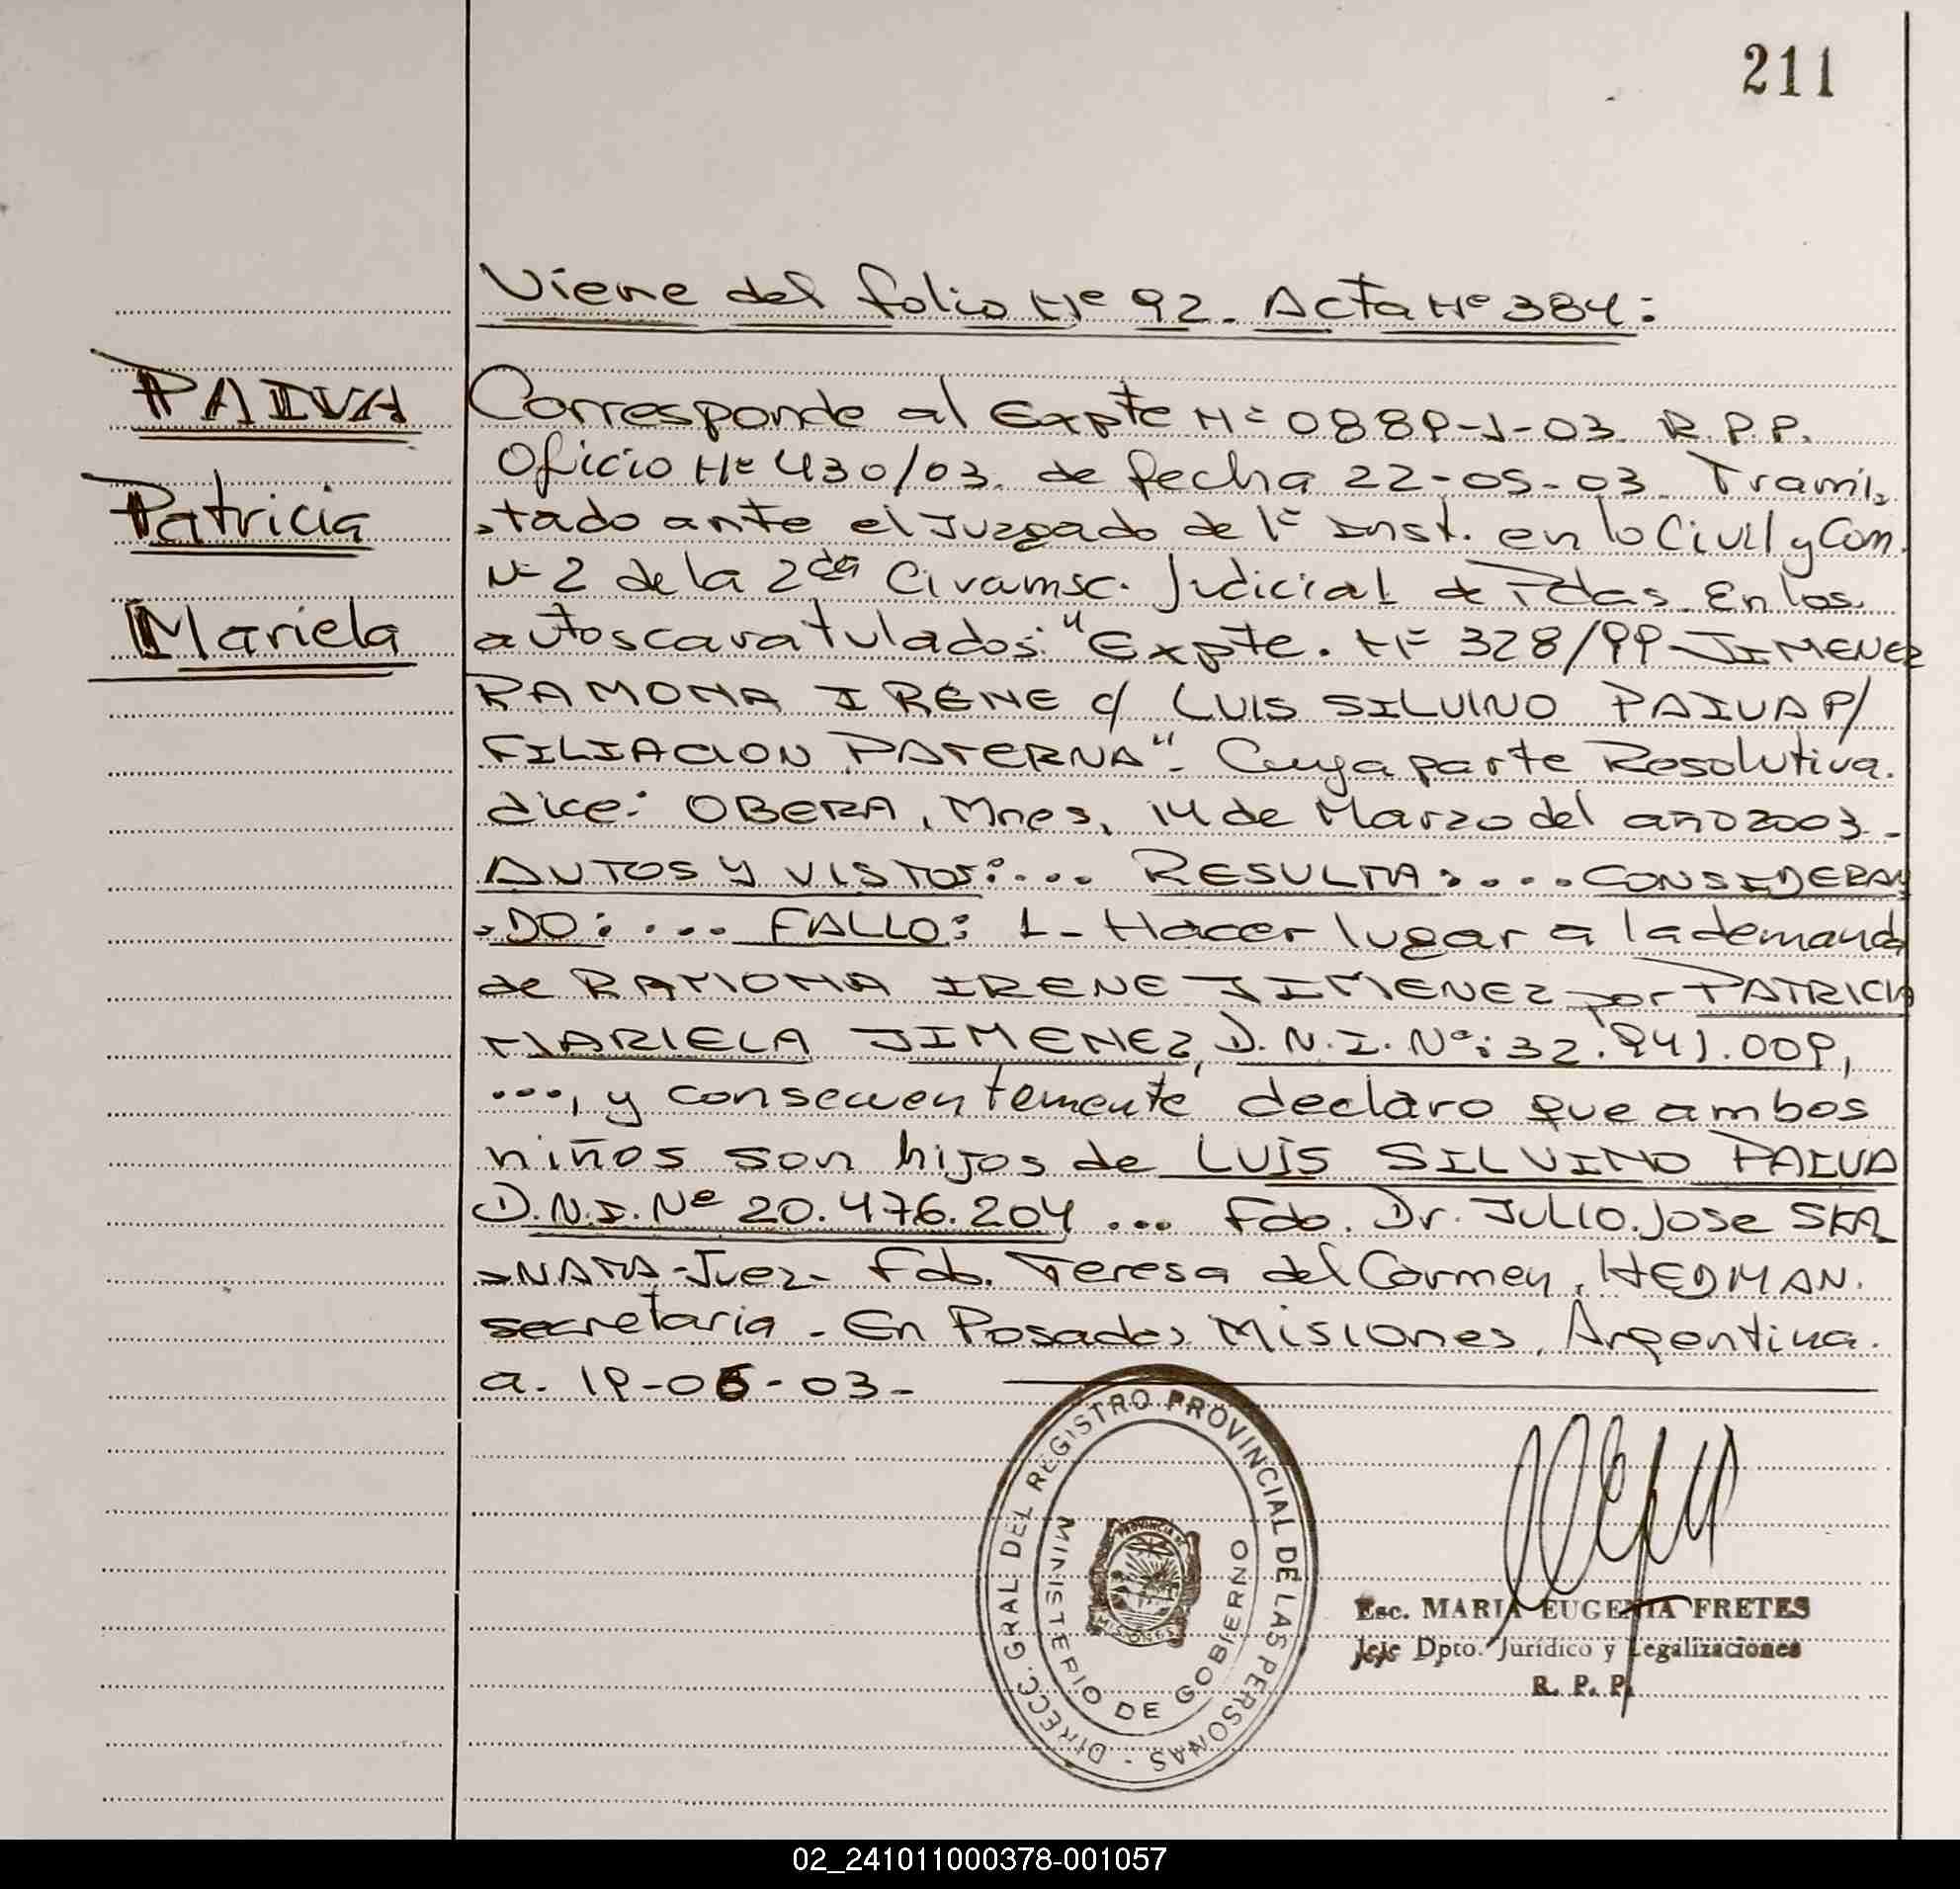 211
Viene del folio Nº 92. Acta Nº 384:
PAIVA
Patricia
Mariela
Corresponde al Expte Nº 0889-J-03. R.P.P.
Oficio Nº 430/03. de fecha 22-05-03. Trami-
-tado ante el Juzgado de 1º Inst. en lo Civil y Com.
Nº 2 de la 2da Circunsc. Judicial de Pdas. En los
autos caratulados: "Expte. Nº 328/99 JIMENEZ
RAMONA IRENE c/ LUIS SILVINO PAIVA P/
FILIACION PATERNA". Cuya parte Resolutiva.
dice: OBERA, Mnes, 14 de Marzo del año 2003.-
AUTOS Y VISTOS:... RESULTA:.... CONSIDERAN
-DO:.... FALLO: 1- Hacer lugar a la demanda
de RAMONA IRENE JIMENEZ por PATRICIA
MARIELA JIMENEZ, D.N.I. Nº: 32.941.009,
..., y consecuentemente declaro que ambos
niños son hijos de LUIS SILVINO PAIVA
D.N.I. Nº 20.476.204 ... Fdo. Dr. Julio. Jose SKA
-NATA-Juez- Fdo. Teresa del Carmen, HEDMAN.
secretaria. En Posadas Misiones, Argentina.
a. 19-06-03-
DIRECC. GRAL DEL REGISTRO PROVINCIAL DE LAS PERSONAS -
MINISTERIO DE GOBIERNO
PROVINCIA DE
MISIONES
Esc. MARIA EUGENIA FRETES
Jefe Dpto. Jurídico y Legalizaciones
R. P. P.
02_241011000378-001057